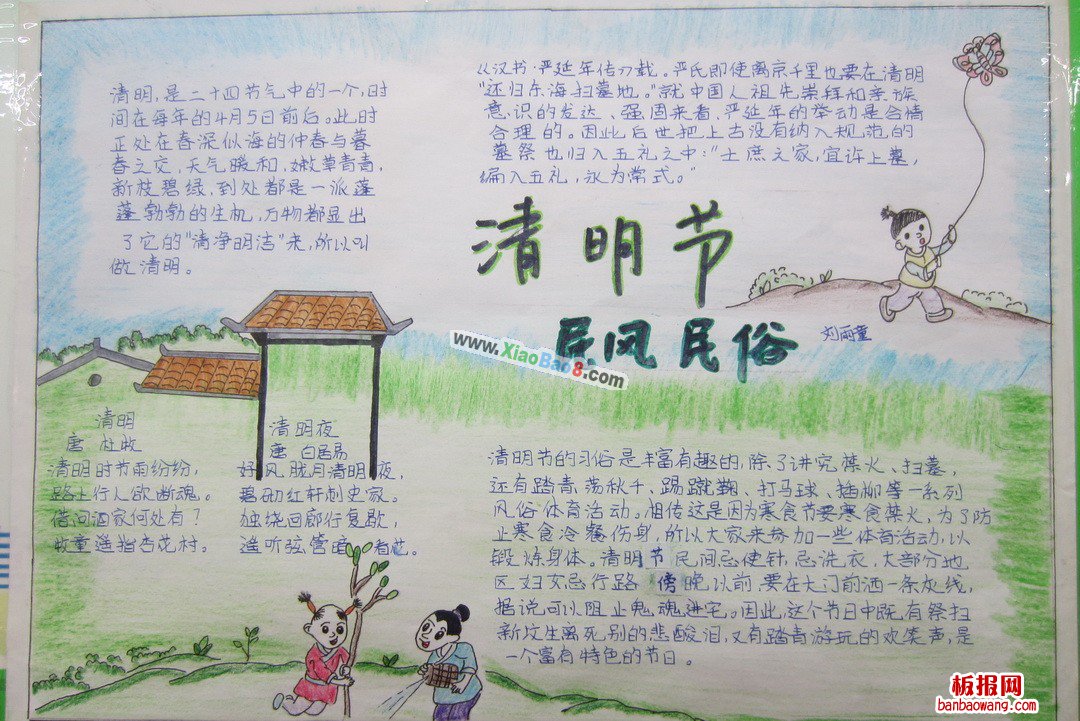 清明,是二十四节气中的一个,时
间在每年的4月5日前后。此时
正处在春深似海的仲春与暮
春之交,天气暖和,嫩草青青,
新枝碧绿,到处都是一派蓬
蓬勃勃的生机,万物都显出
了它的"清净明洁"来,所以叫
做清明。
从汉书·严延年传刀载。严氏即使离京千里也要在清明
"还归东海扫墓地。"就中国人祖先崇拜和亲族
意识的发达、强固来看,严延年的举动是合情
合理的。因此后世把上古没有纳入规范的
墓祭也归入五礼之中:"士庶之家,宜许上墓,
编入五礼,永为常式。"
清明节
民风民俗
刘雨童
www.XiaoBao8.com
清明
唐 杜牧
清明时节雨纷纷,
路上行人欲断魂。
借问酒家何处有?
牧童遥指杏花村。
清明夜
唐 白居易
好风胧月清明夜,
碧砌红轩刺史家。
独绕回廊行复歇,
遥听弦管暗看花。
清明节的习俗是丰富有趣的,除了讲究禁火、扫墓,
还有踏青、荡秋千、踢蹴鞠、打马球、插柳等一系列
风俗体育活动。相传这是因为寒食节要寒食禁火,为了防
止寒食冷餐伤身,所以大家来参加一些体育活动,以
锻炼身体。清明节民间忌使针,忌洗衣,大部分地
区妇女忌行路。傍晚以前,要在大门前洒一条灰线,
据说可以阻止鬼魂进宅。因此,这个节日中既有祭扫
新坟生离死别的悲酸泪,又有踏青游玩的欢笑声,是
一个富有特色的节日。
板报网
banbaowang.com